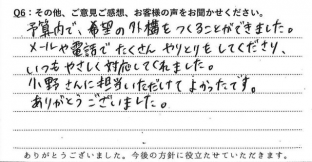 Q6：その他、ご意見ご感想、お客様の声をお聞かせください。
予算内で、希望の外構をつくることができました。
メールや電話でたくさんやりとりをしてくださり、
いつもやさしく対応してくれました。
小野さんに担当いただけてよかったです。
ありがとうございました。
ありがとうございました。今後の方針に役立たせていただきます。